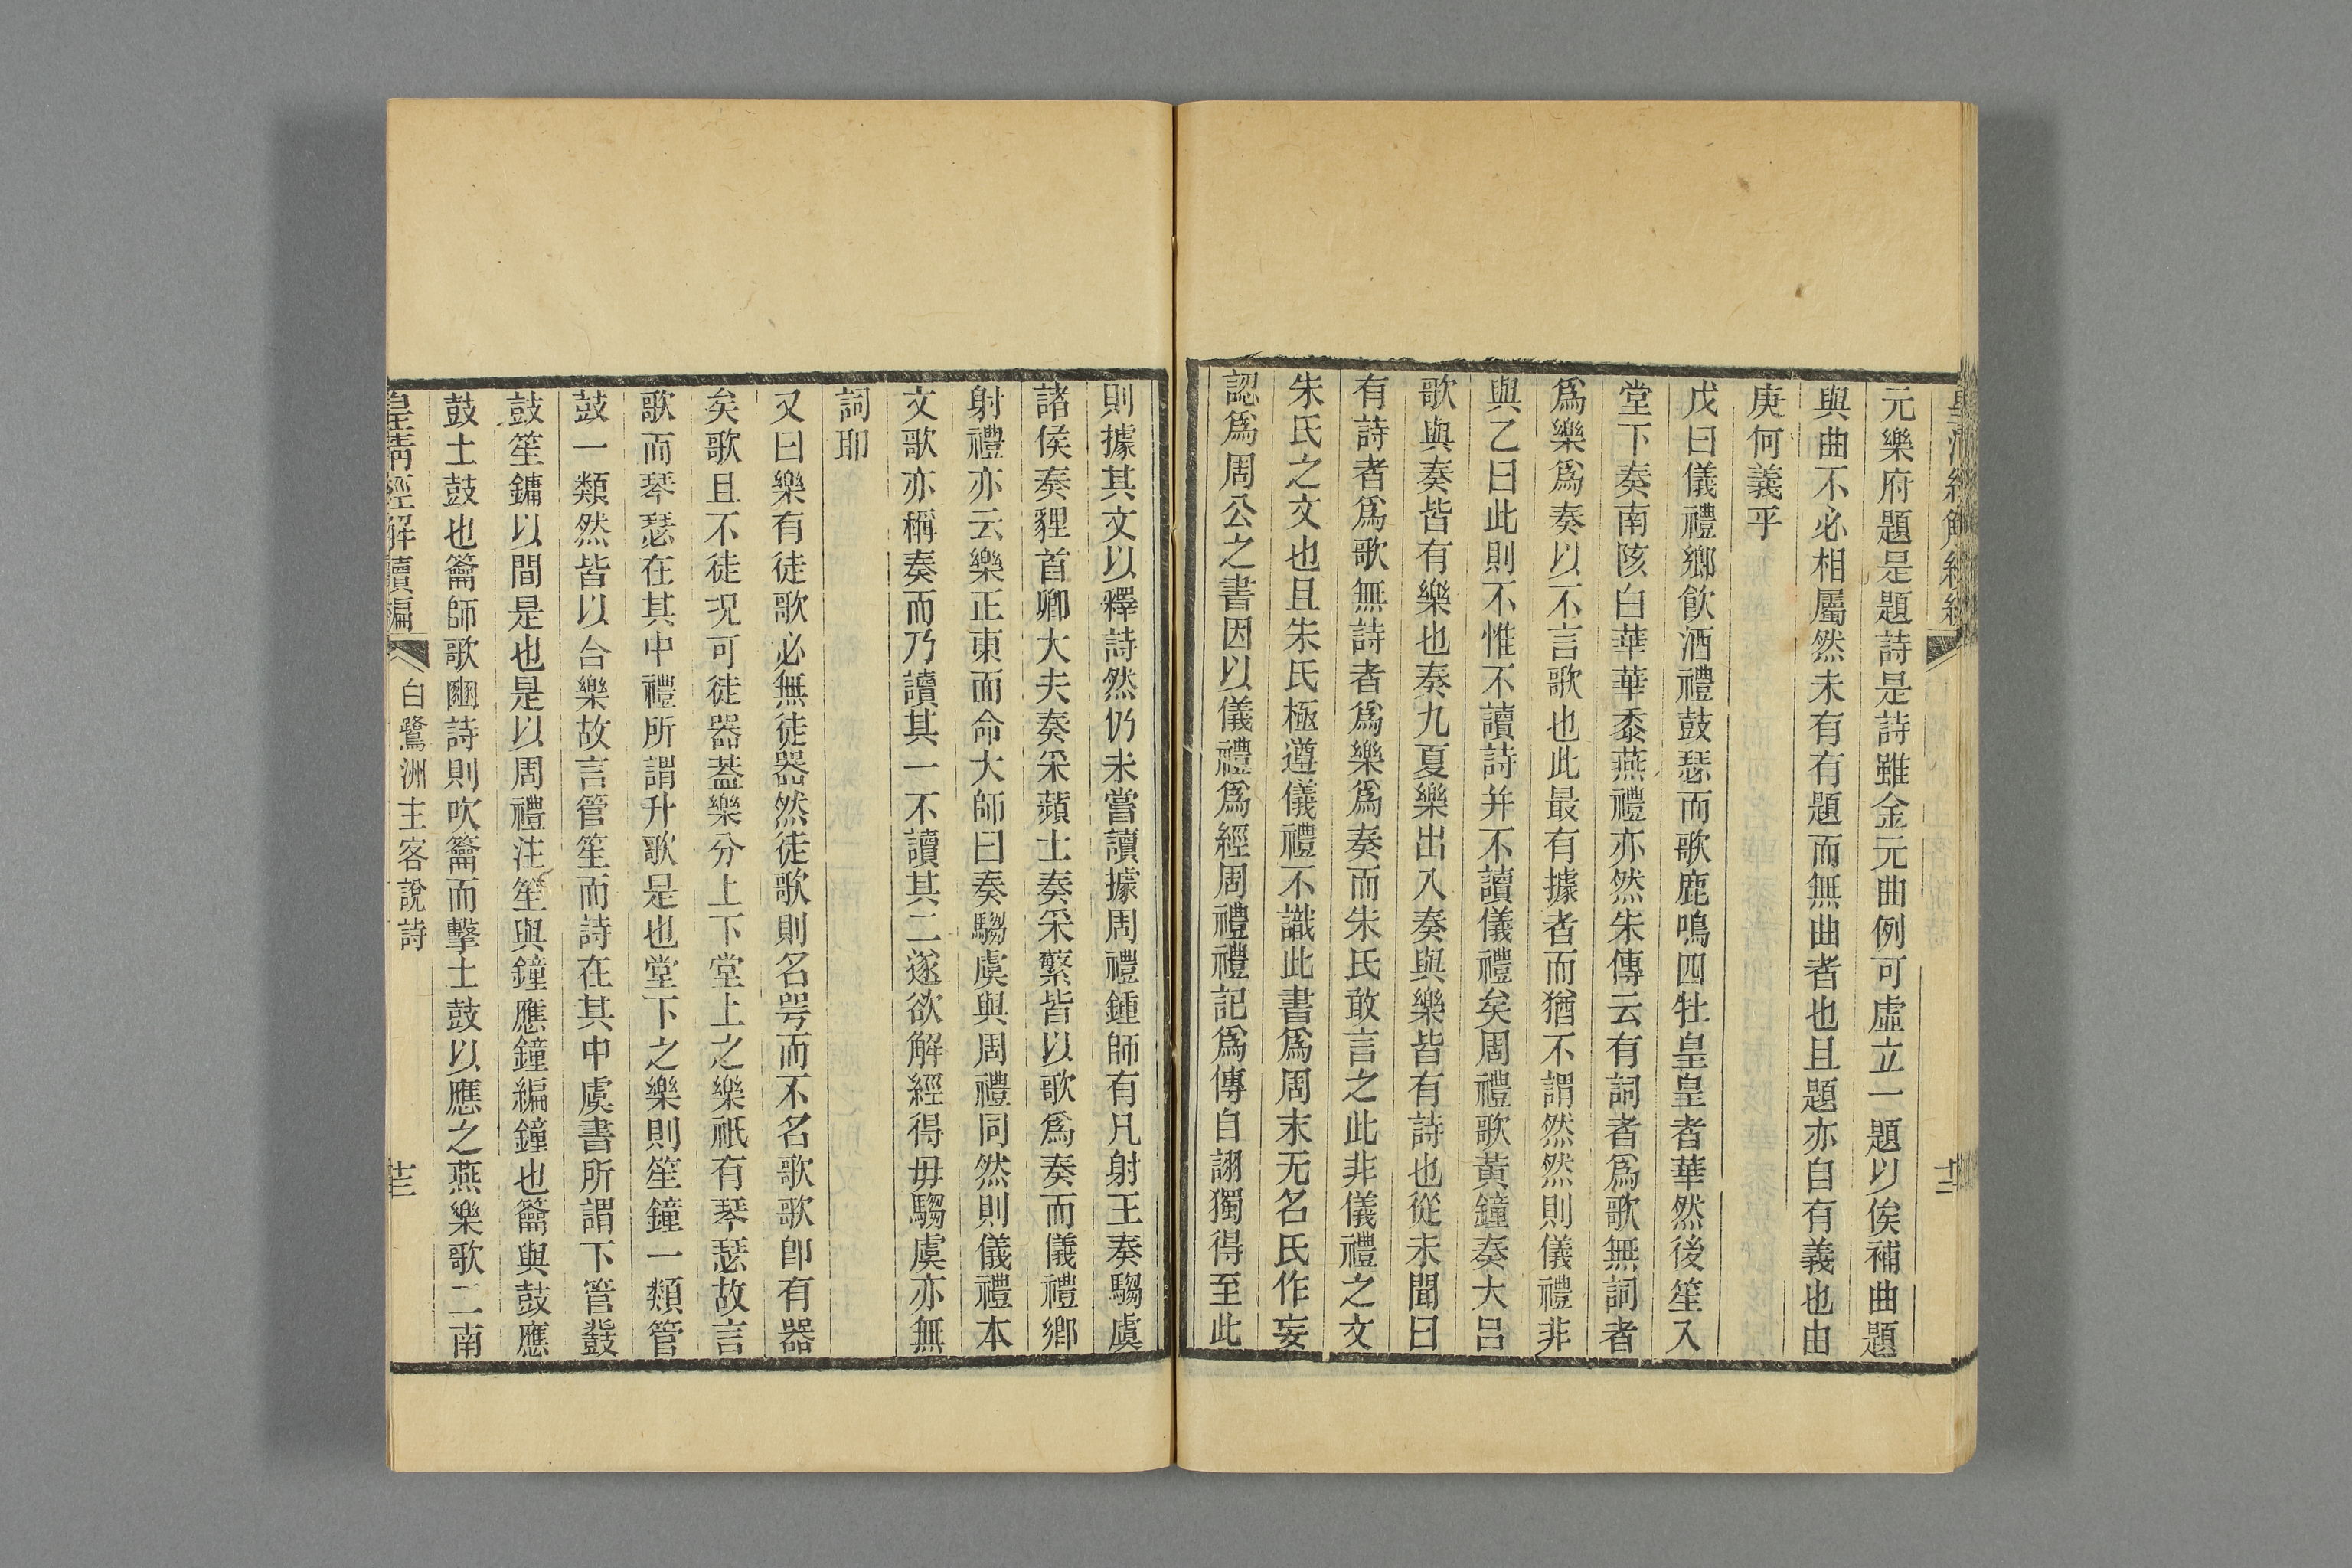 元樂府題是題詩是詩雖金元曲例可虛立一題以俟補曲題
與曲不必相屬然未有有題而無曲者也且題亦自有義也由
庚何義乎
戊曰儀禮鄉飮酒禮鼓瑟而歌鹿鳴四牡皇皇者華然後笙入
堂下奏南陔白華華黍燕禮亦然朱傳云有詞者爲歌無詞者
爲樂爲奏以不言歌也此最有據者而猶不謂然然則儀禮非
與乙曰此則不惟不讀詩并不讀儀禮矣周禮歌黃鐘奏大呂
歌與奏皆有樂也奏九夏樂出入奏與樂皆有詩也從未聞曰
有詩者爲歌無詩者爲樂爲奏而朱氏敢言之此非儀禮之文
朱氏之文也且朱氏極遵儀禮不識此書爲周末无名氏作妄
認爲周公之書因以儀禮爲經周禮禮記爲傳自詡獨得至此
則據其文以釋詩然仍未嘗讀據周禮鍾師有凡射王奏騶虞
諸侯奏貍首卿大夫奏采蘋士奏采蘩皆以歌爲奏而儀禮鄉
射禮亦云樂正東面命大師曰奏騶虞與周禮同然則儀禮本
文歌亦稱奏而乃讀其一不讀其二遂欲解經得毋騶虞亦無
詞耶
又曰樂有徒歌必無徒器然徒歌則名咢而不名歌歌卽有器
矣歌且不徒況可徒器葢樂分上下堂上之樂祇有琴瑟故言
歌而琴瑟在其中禮所謂升歌是也堂下之樂則笙鐘一類管
鼓一類然皆以合樂故言管笙而詩在其中虞書所謂下管鼗
鼓笙鏞以間是也是以周禮注笙與鐘應鐘編鐘也籥與鼓應
鼓土鼓也籥師歌豳詩則吹籥而擊土鼓以應之燕樂歌二南
皇淸經解續編
白鷺洲主客說詩
十三